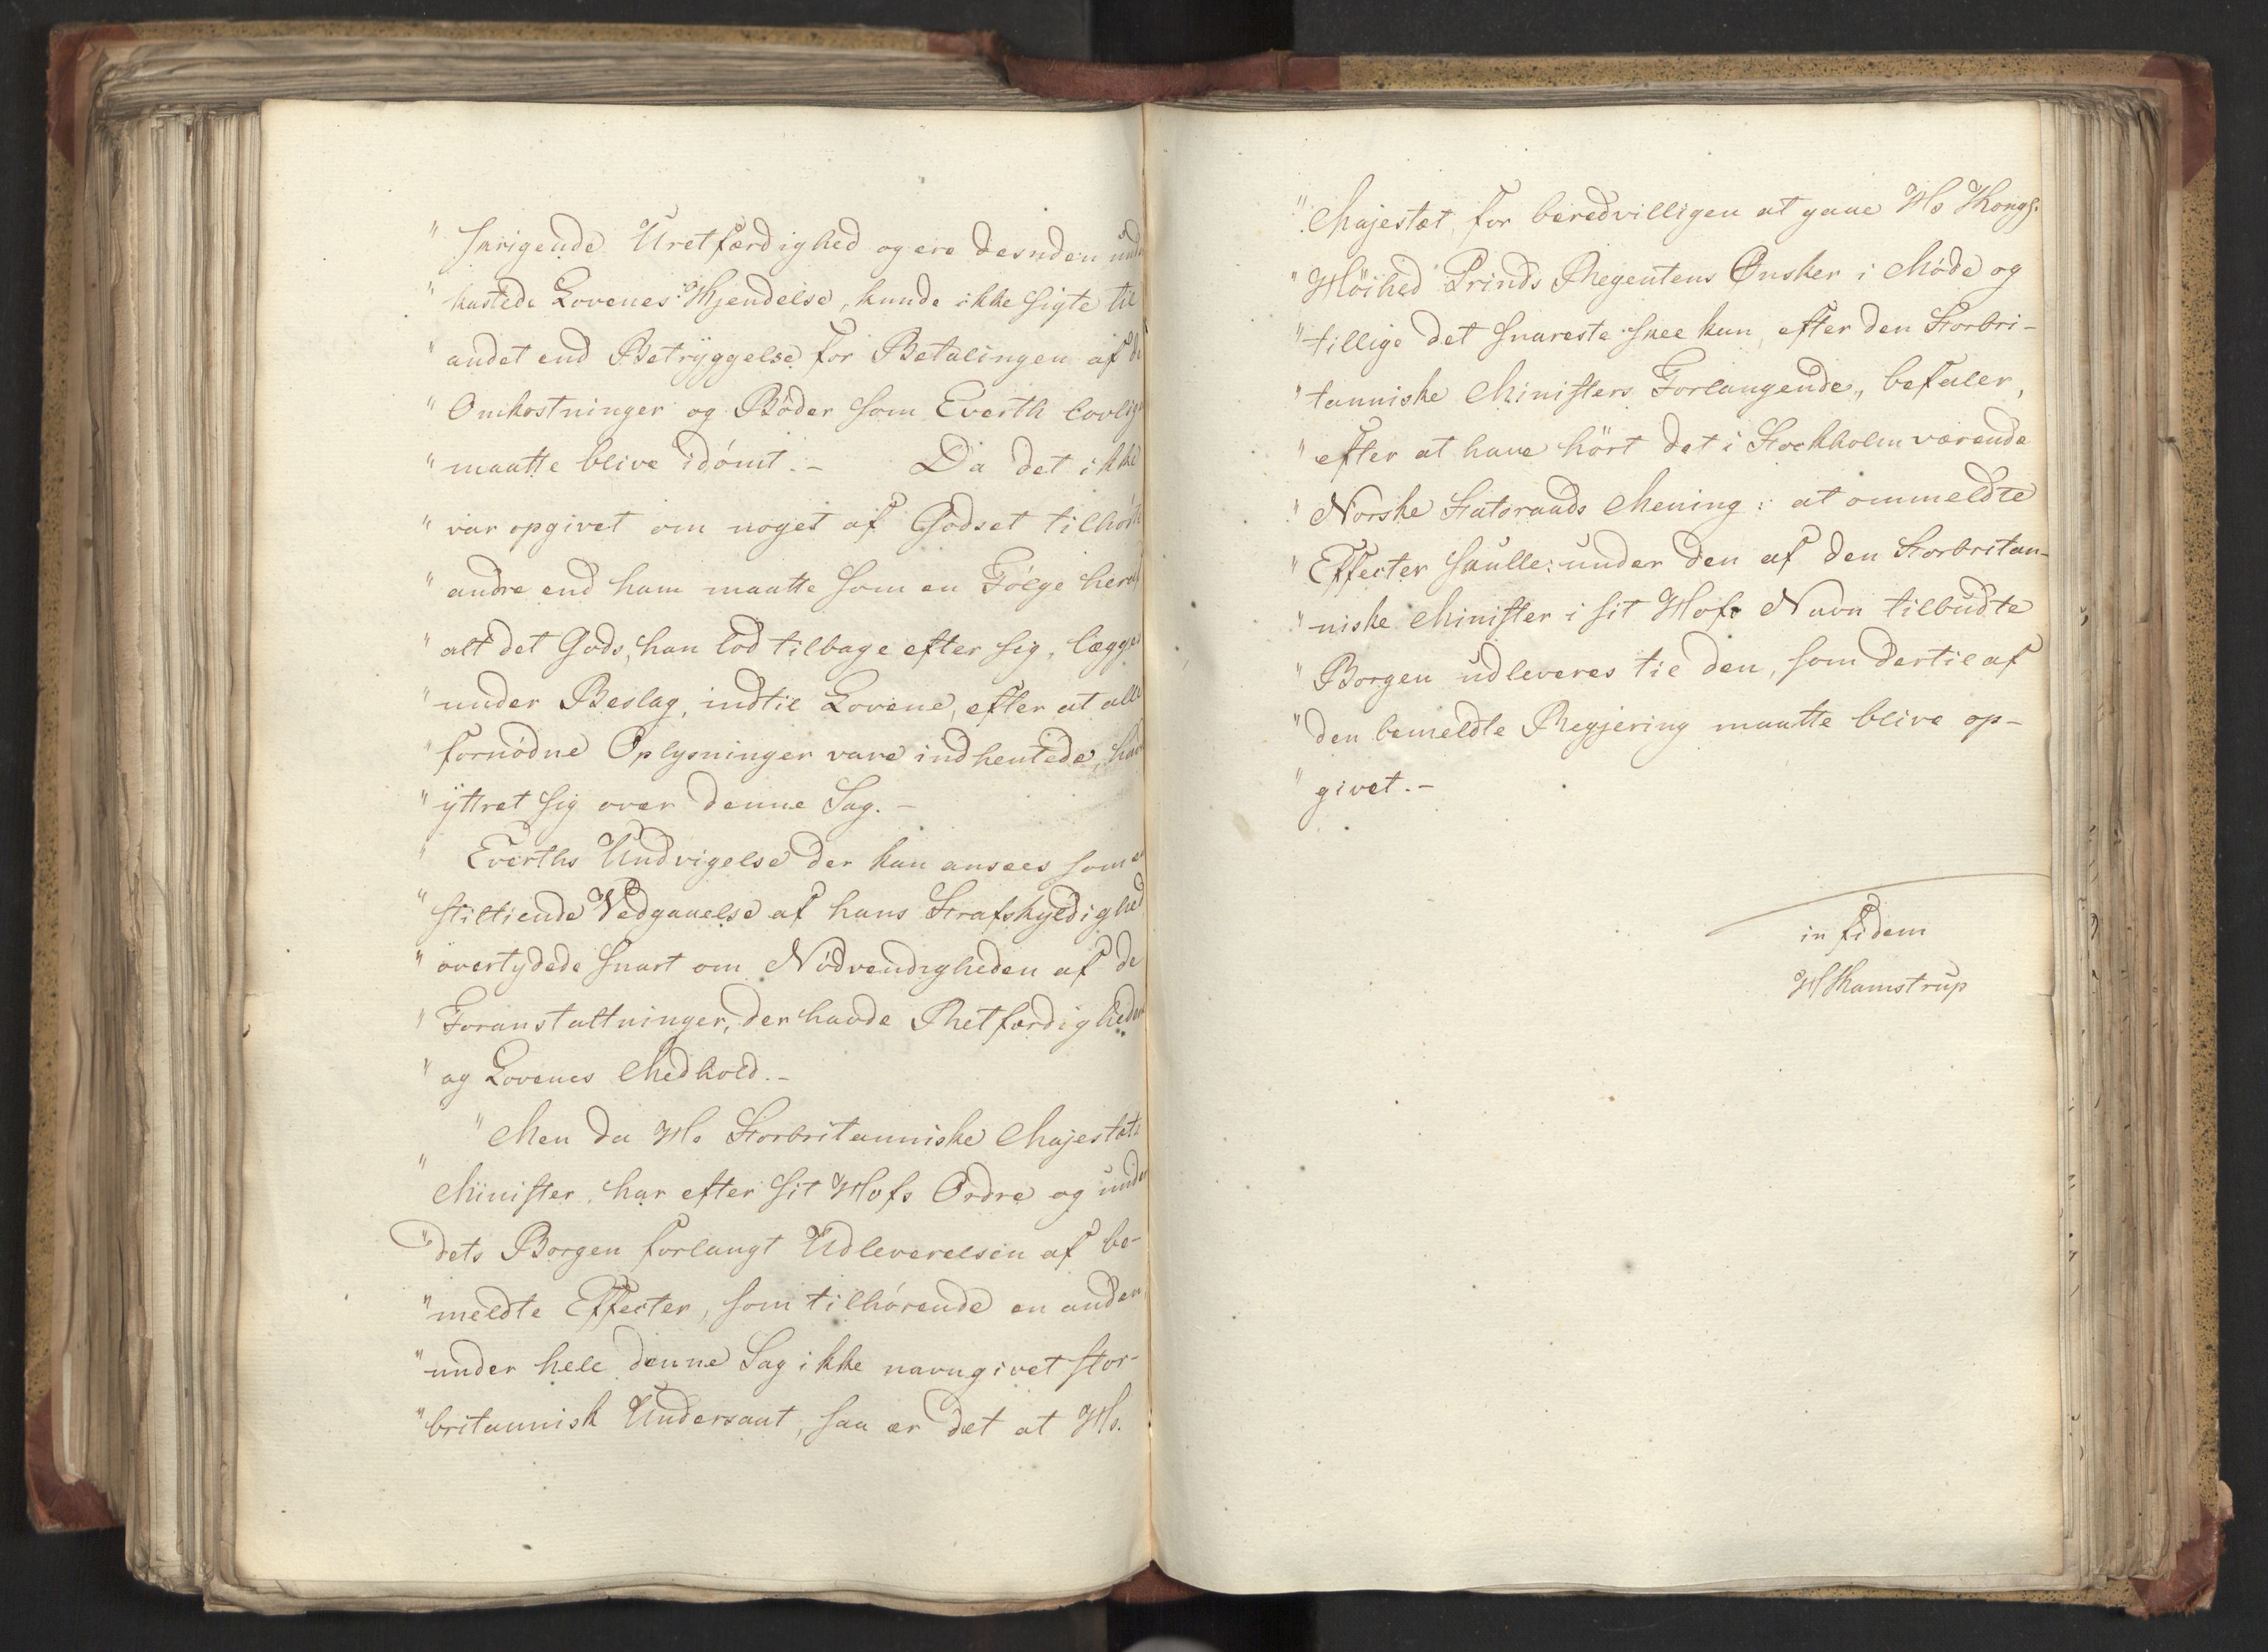 " skrigende Uretfærdighed og ere desuden und
" kastede Lovenes Kjendelse, kunde ikke sigte til
" andet end Betryggelse for Betalingen af de
" Omkostninger og Böder som Everth lovlig
" maatte blive idömt. – Da det ikke
" var opgivet om noget af Godset tilhörte
" andre end ham maatte som en Fölge heraf
" alt det Gods, han lod tilbage efter sig, lægges
" under Beslag, indtil Lovene, efter at alle
" fornödne Oplysninger vare indhentede, havde
" yttret sig over denne Sag. –
" Everths Undvigelse der kan ansees som en
" stiltiende Vedgaaelse af hans Strafskyldighed
" overtydede snart om Nödvendigheden af de
" Foranstaltninger, der havde Retfærdigheden
" og Lovenes Medhold. –
" Men da Hs Storbritanniske Majestæts
" Minister har efter sit Hofs Ordre og under
" dets Borgen forlangt Udleverelsen af be-
" meldte Effecter, som tilhörende en anden,
" under hele denne Sag ikke navngivet stor-
" britannisk Undersaat, saa er det at Hs.
" Majestæt, for beredvilligen at gaae Hs Kongl.
" Höihed Prinds Regentens Ønsker i Möde og
" tillige det snareste skee kan, efter den Storbri-
" tanniske Ministers Forlangende, befaler,
" efter at have hört det i Stockholm værende
" Norske Statsraads Mening: at ommeldte
" Effecter skulle under den af den Storbritan-
" niske Minister i sit Hofs Navn tilbudte
" Borgen udleveres til den, som dertil af
" den bemeldte Regjering maatte blive op-
" givet. –
in fidem
H Kamstrup